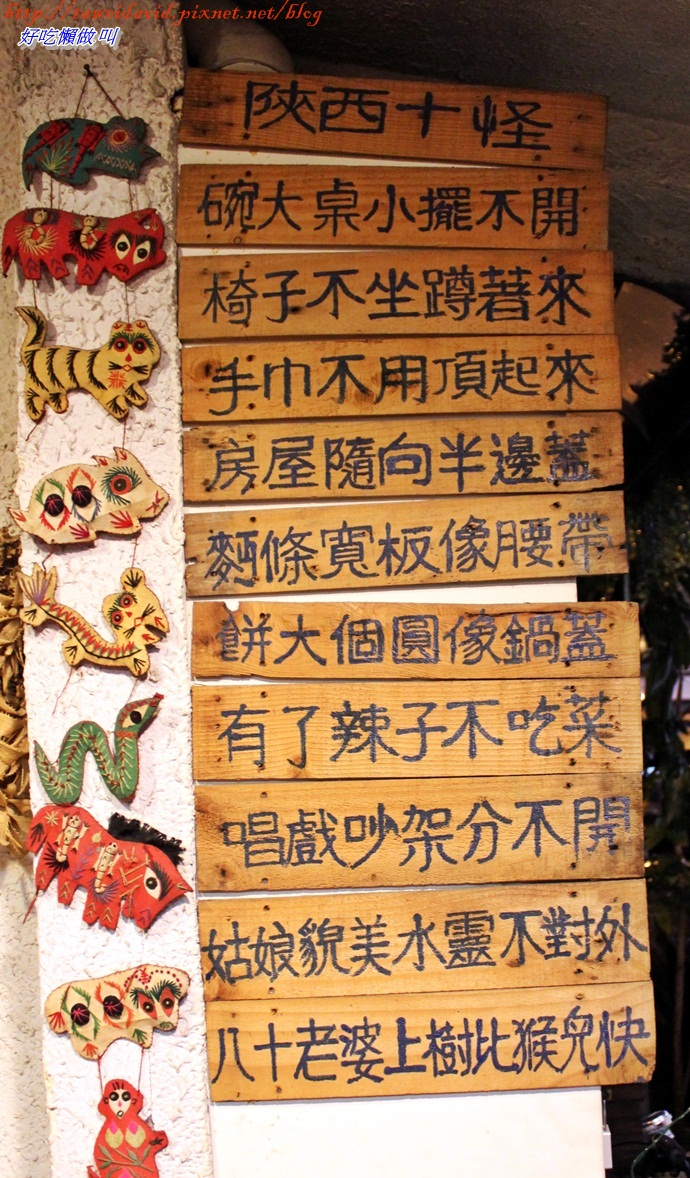 http://zeusdavid.pixnet.net/blog
好吃懶做 叫
陝西十怪
碗大桌小擺不開
椅子不坐蹲著來
手巾不用頂起來
房屋隨向半邊蓋
麵條寬板像腰帶
餅大個圓像鍋蓋
有了辣子不吃菜
唱戲吵架分不開
姑娘貌美水靈不對外
八十老婆上樹比猴兒快